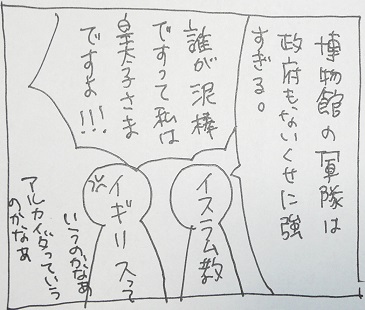 博物館の軍隊は
政府もないくせに強
すぎる。
誰が泥棒
ですって私は
皇太子さま
ですよ!!!
イスラム教
イギリスって
いうのかなあ
アルカイダっていう
のかなあ